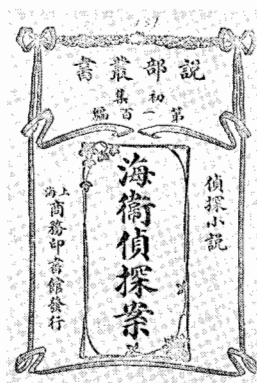 説部叢書
初集
第一百編
偵探小説
海衛偵探案
上海商務印書館發行